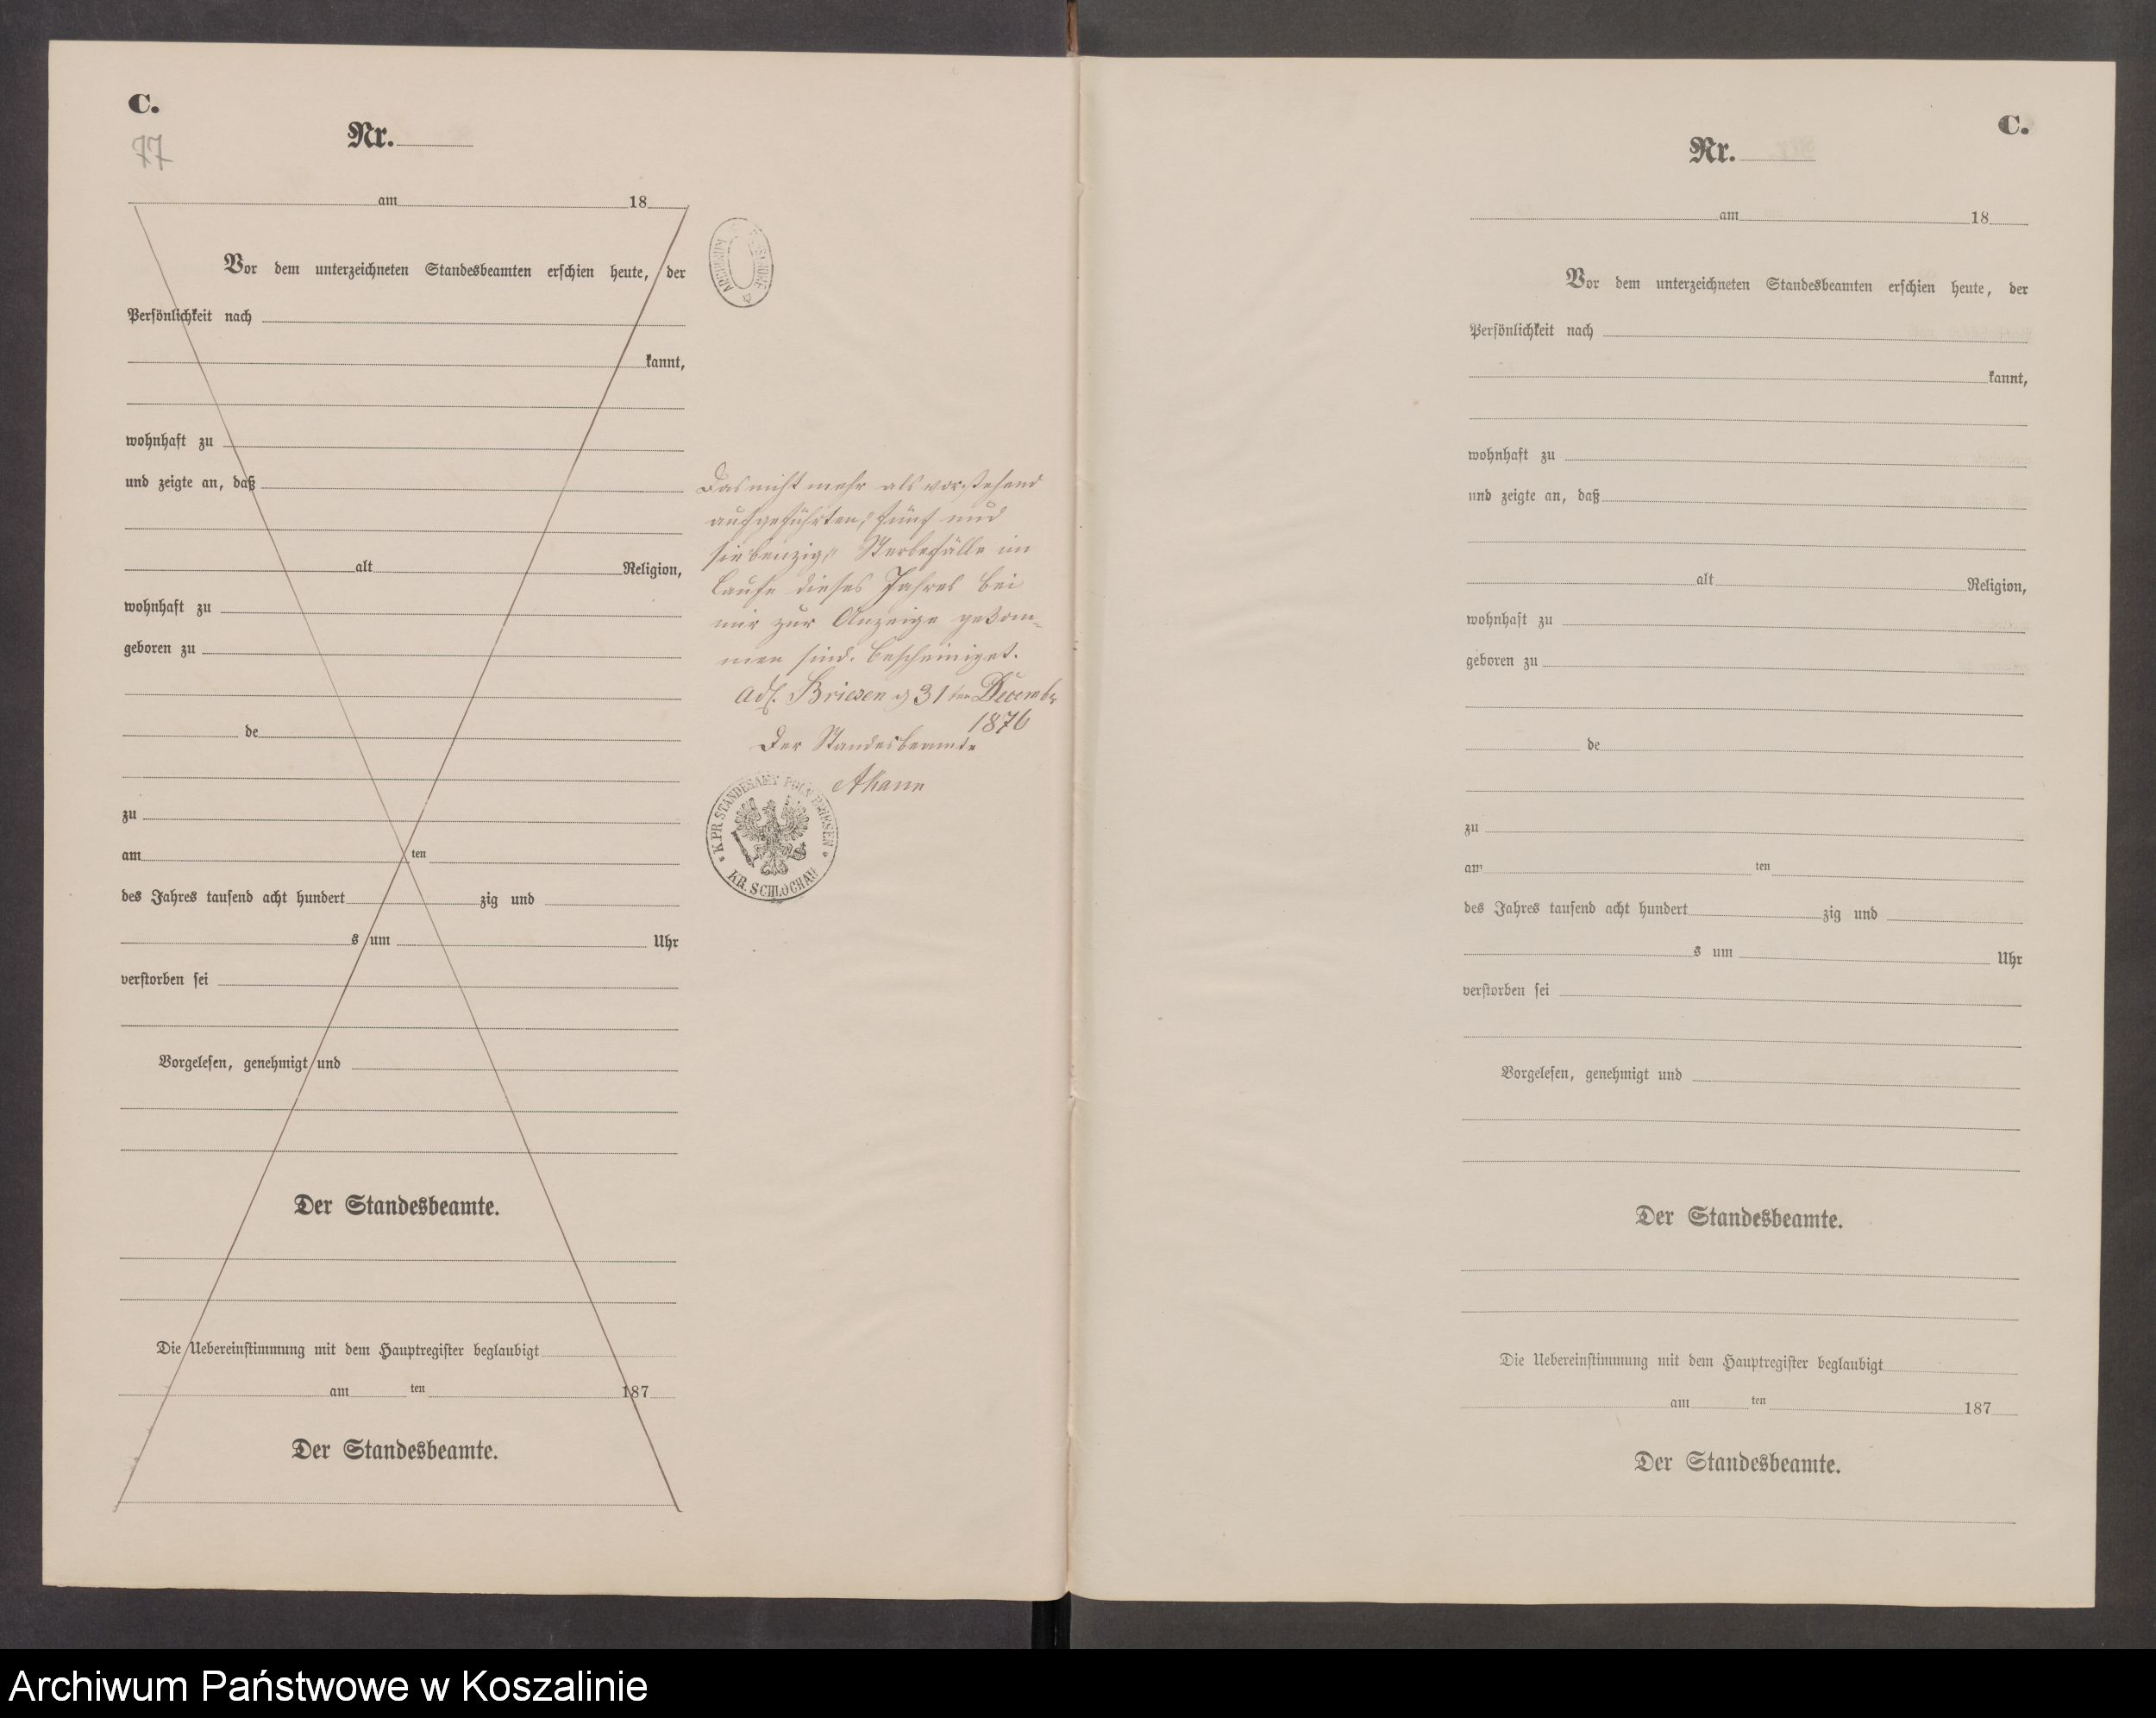 C.
77
Nr.
am 18
Vor dem unterzeichneten Standesbeamten erschien heute, der
Persönlichkeit nach
kannt,
wohnhaft zu
und zeigte an, daß
alt Religion,
wohnhaft zu
geboren zu
de
zu
am ten
des Jahres tausend acht hundert zig und
s um Uhr
verstorben sei
Vorgelesen, genehmigt und
Der Standesbeamte.
Die Uebereinstimmung mit dem Hauptregister beglaubigt
am ten 187
Der Standesbeamte.
Das nicht mehr als vorstehend
aufgeführten, "fünf und
siebenzig" Sterbefälle im
Laufe dieses Jahres bei
mir zur Anzeige gekom-
men sind. bescheiniget.
Adl. Briesen 31ten Decembr
1876
Der Standesbeamte
K. PR. STANDESAMT POLN. BRIESEN
KR. SCHLOCHAU
C.
Nr.
am 18
Vor dem unterzeichneten Standesbeamten erschien heute, der
Persönlichkeit nach
kannt,
wohnhaft zu
und zeigte an, daß
alt Religion,
wohnhaft zu
geboren zu
de
zu
am ten
des Jahres tausend acht hundert zig und
s um Uhr
verstorben sei
Vorgelesen, genehmigt und
Der Standesbeamte.
Die Uebereinstimmung mit dem Hauptregister beglaubigt
am ten 187
Der Standesbeamte.
Archiwum Państwowe w Koszalinie